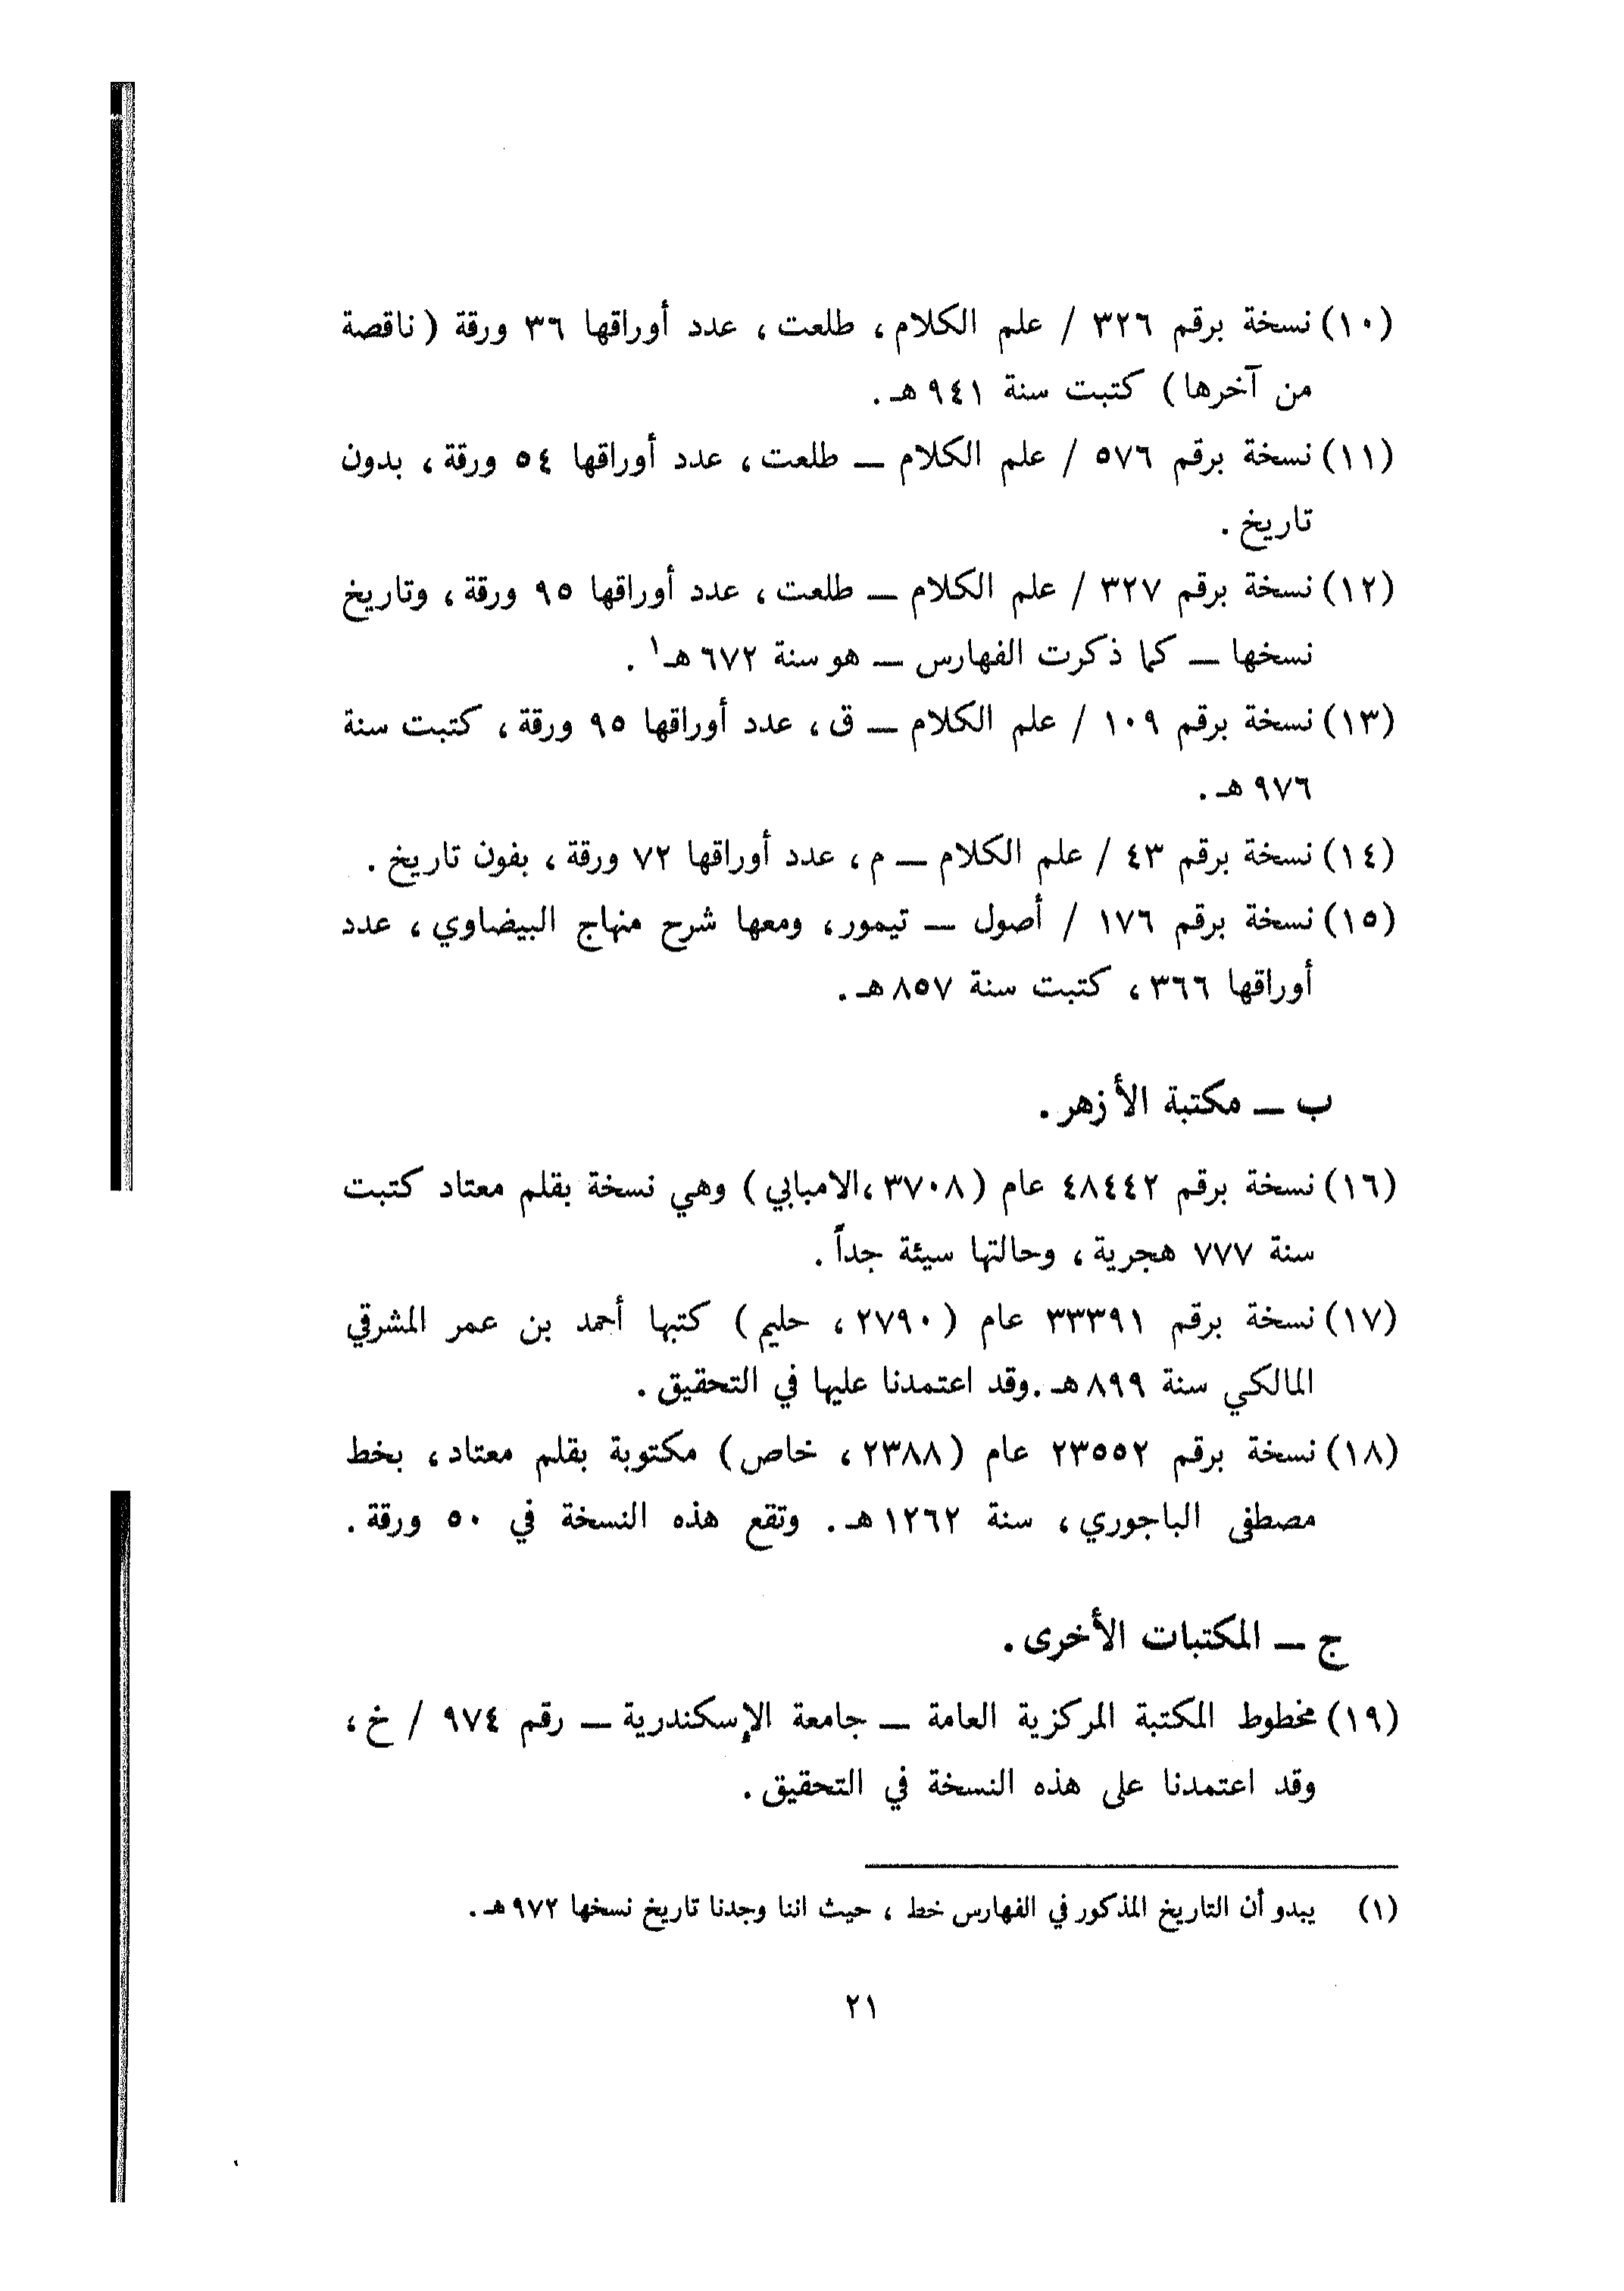 (١٠) نسخة برقم ٣٢٦ / علم الكلام، طلعت، عدد أوراقها ٣٦ ورقة (ناقصة
من آخرها) كتبت سنة ٩٤١هـ.
(١١) نسخة برقم ٥٧٦ / علم الكلام — طلعت، عدد أوراقها ٥٤ ورقة، بدون
تاريخ.
(١٢) نسخة برقم ٣٢٧ / علم الكلام — طلعت، عدد أوراقها ٩٥ ورقة، وتاريخ
نسخها — كما ذكرت الفهارس — هو سنة ٦٧٢هـ١.
(١٣) نسخة برقم ١٠٩ / علم الكلام — ق، عدد أوراقها ٩٥ ورقة، كتبت سنة
٩٧٦هـ.
(١٤) نسخة برقم ٤٣ / علم الكلام — م، عدد أوراقها ٧٢ ورقة، بفون تاريخ.
(١٥) نسخة برقم ١٧٦ / أصول — تيمور، ومعها شرح منهاج البيضاوي، عدد
أوراقها ٣٦٦، كتبت سنة ٨٥٧هـ.
ب — مكتبة الأزهر.
(١٦) نسخة برقم ٤٨٤٤٢ عام (٣٧٠٨،الامبابي) وهي نسخة بقلم معتاد كتبت
سنة ٧٧٧ هجرية، وحالتها سيئة جداً.
(١٧) نسخة برقم ٣٣٣٩١ عام (٢٧٩٠، حليم) كتبها أحمد بن عمر المشرقي
المالكي سنة ٨٩٩هـ.وقد اعتمدنا عليها في التحقيق.
(١٨) نسخة برقم ٢٣٥٥٢ عام (٢٣٨٨، خاص) مكتوبة بقلم معتاد، بخط
مصطفى الباجوري، سنة ١٢٦٢هـ. وتقع هذه النسخة في ٥٠ ورقة.
ج — المكتبات الأخرى.
(١٩) مخطوط المكتبة المركزية العامة — جامعة الإسكندرية — رقم ٩٧٤ / خ،
وقد اعتمدنا على هذه النسخة في التحقيق.
(١) يبدو أن التاريخ المذكور في الفهارس خط ، حيث اننا وجدنا تاريخ نسخها ٩٧٢هـ.
٢١